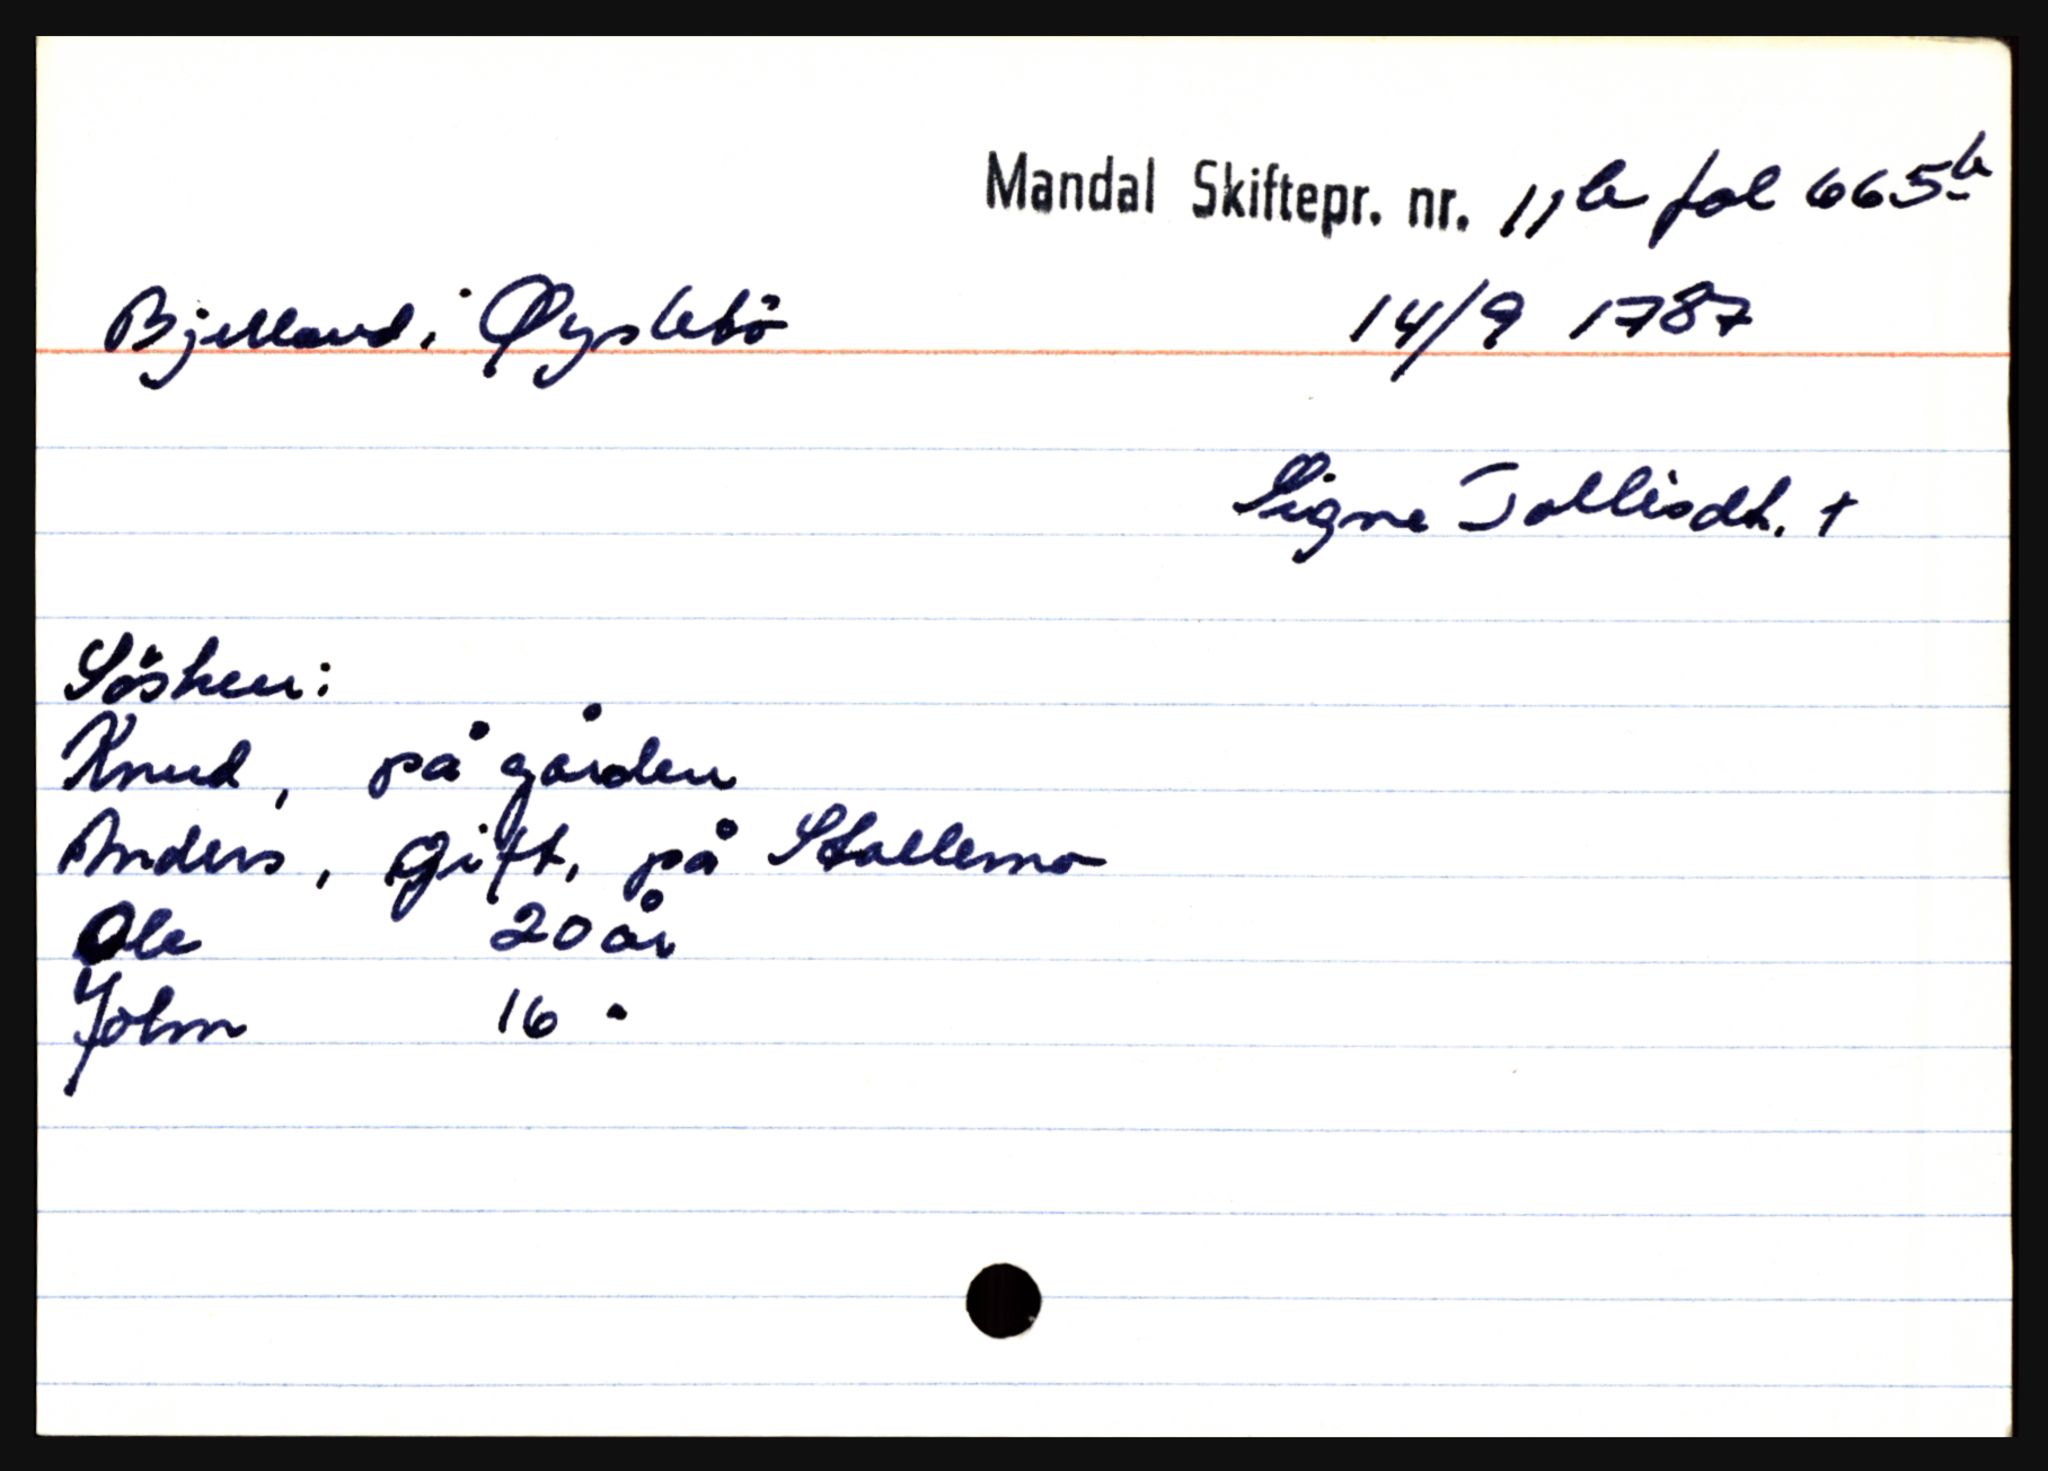 Mandal Skiftepr. nr. 11b fol 665b
Bjelland i Øyslebö 14/9 1787
Signe Tollisdt. +
Sösken:
Knud, på gården
Anders, gift, på Stallemo
Ole 20 år
John 16 "